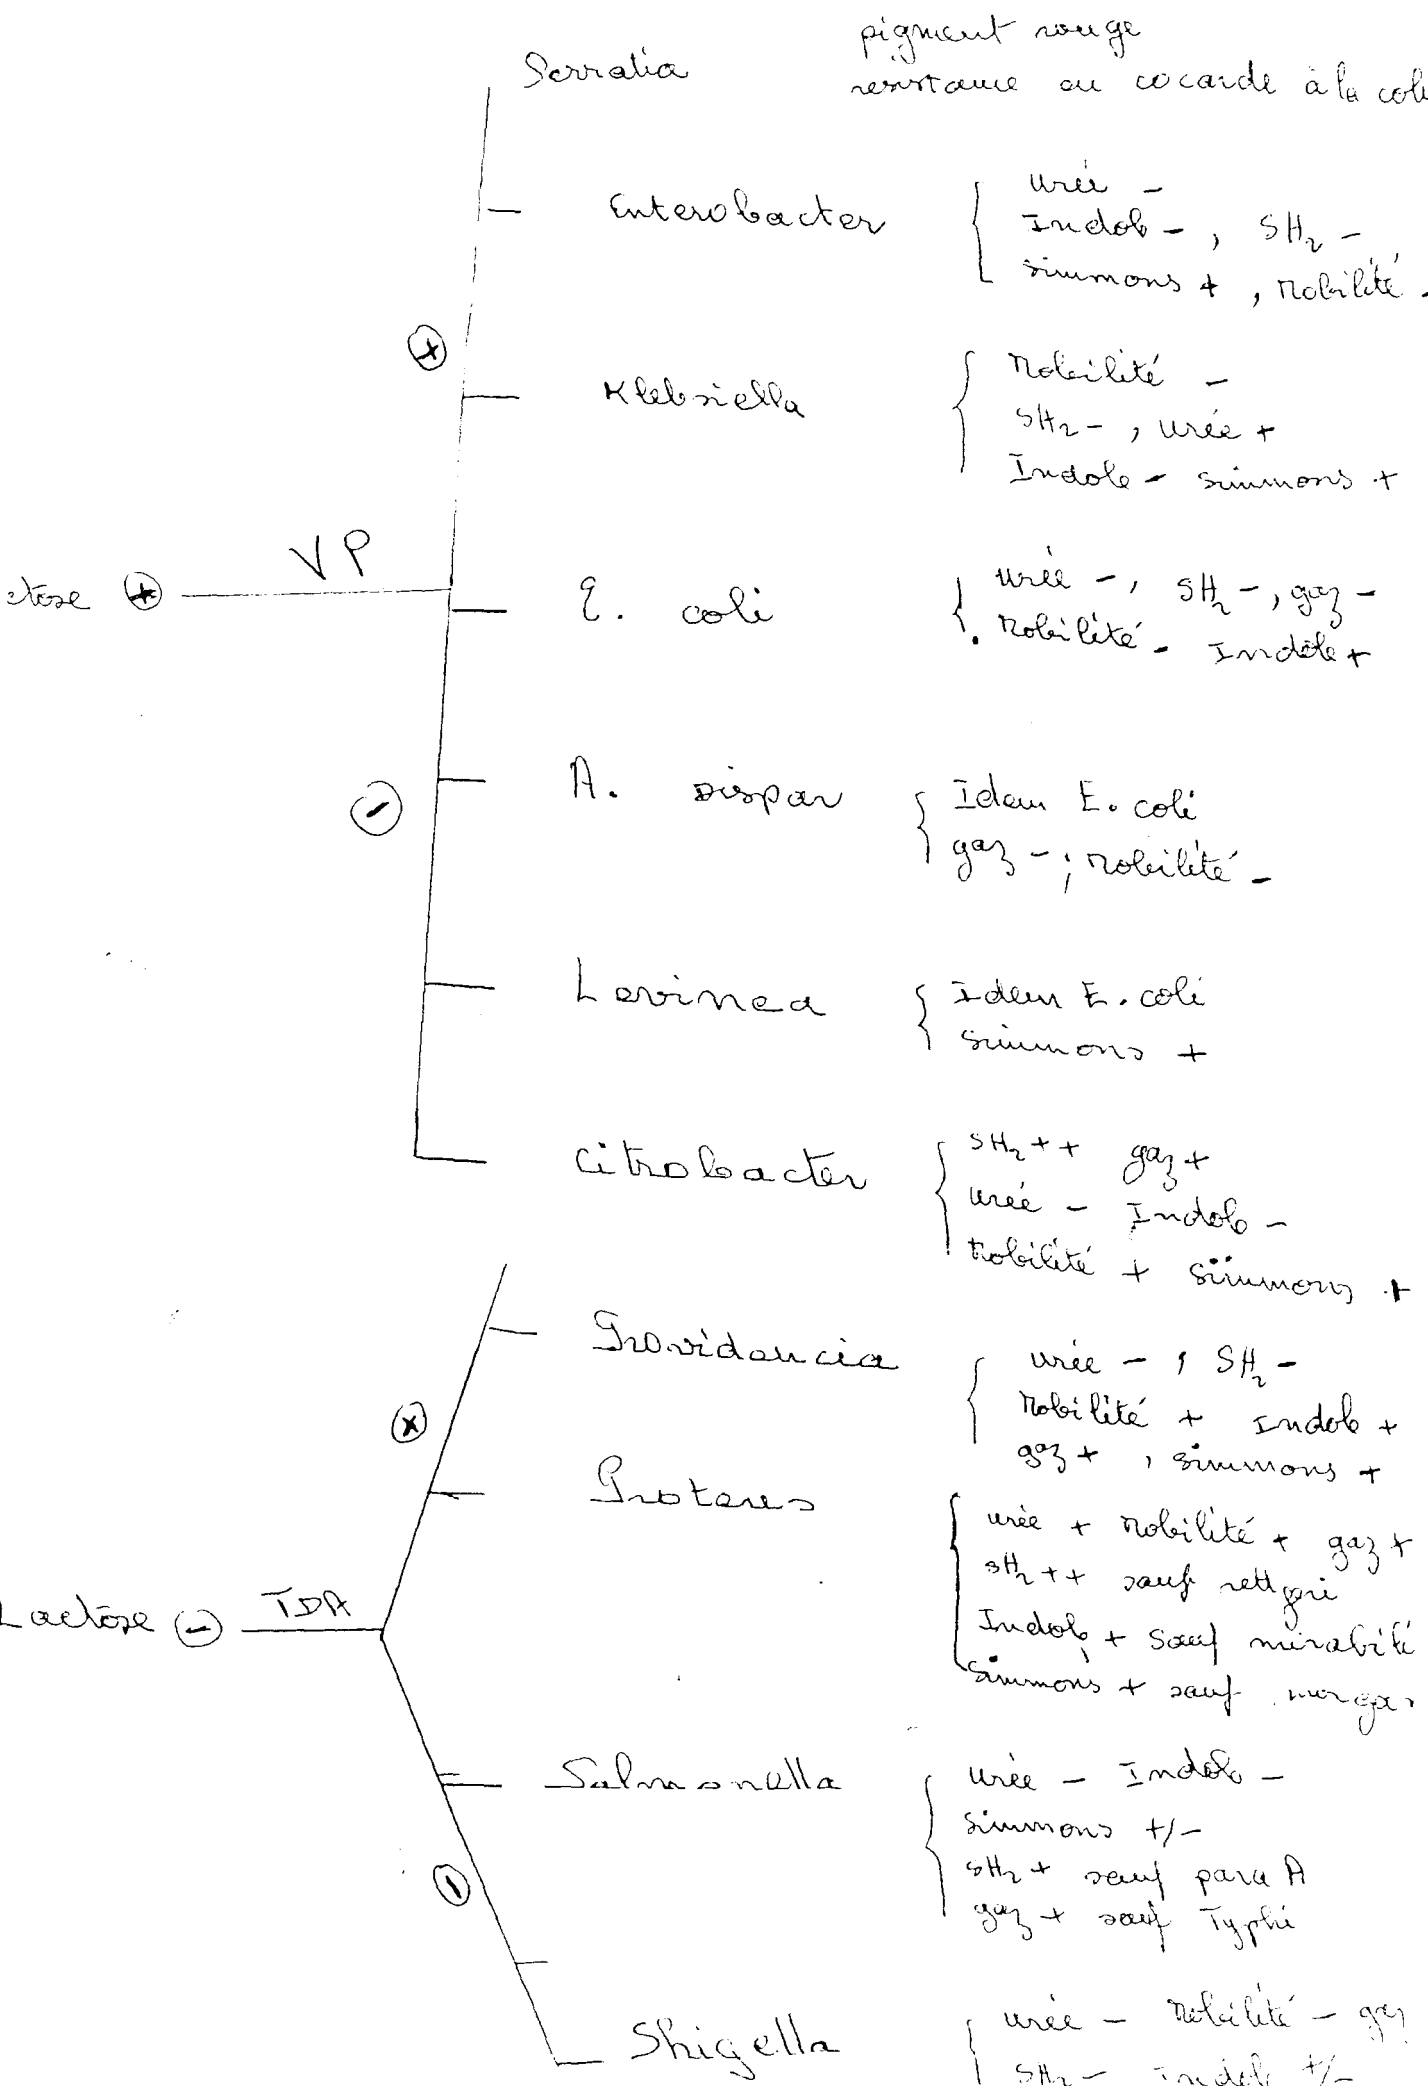 pigment rouge
Serratia résistance ou cocarde à la coli
Enterobacter
urée -
Indole - , SH2 -
simmons + , Mobilité -
+
Klebsiella
Mobilité -
SH2 - , urée +
Indole - simmons +
VP
ctose +
E. coli
urée -, SH2 -, gaz -
Mobilité - Indôle +
-
A. Dispar
Idem E. coli
gaz - ; Mobilité -
Levinea
Idem E. coli
simmons +
Citrobacter
SH2 ++ gaz +
urée - Indole -
Mobilité + simmons +
Providencia
urée - , SH2 -
Mobilité + Indole +
gaz + , simmons +
+
Proteus
urée + Mobilité + gaz +
SH2 ++ sauf rettgeri
Indole + Sauf mirabili
Simmons + sauf morga
Lactose - TDA
Salmonella
urée - Indole -
simmons +/-
SH2 + sauf para A
gaz + sauf Typhi
-
Shigella
urée - Mobilité - gaz
SH2 - Indole +/-